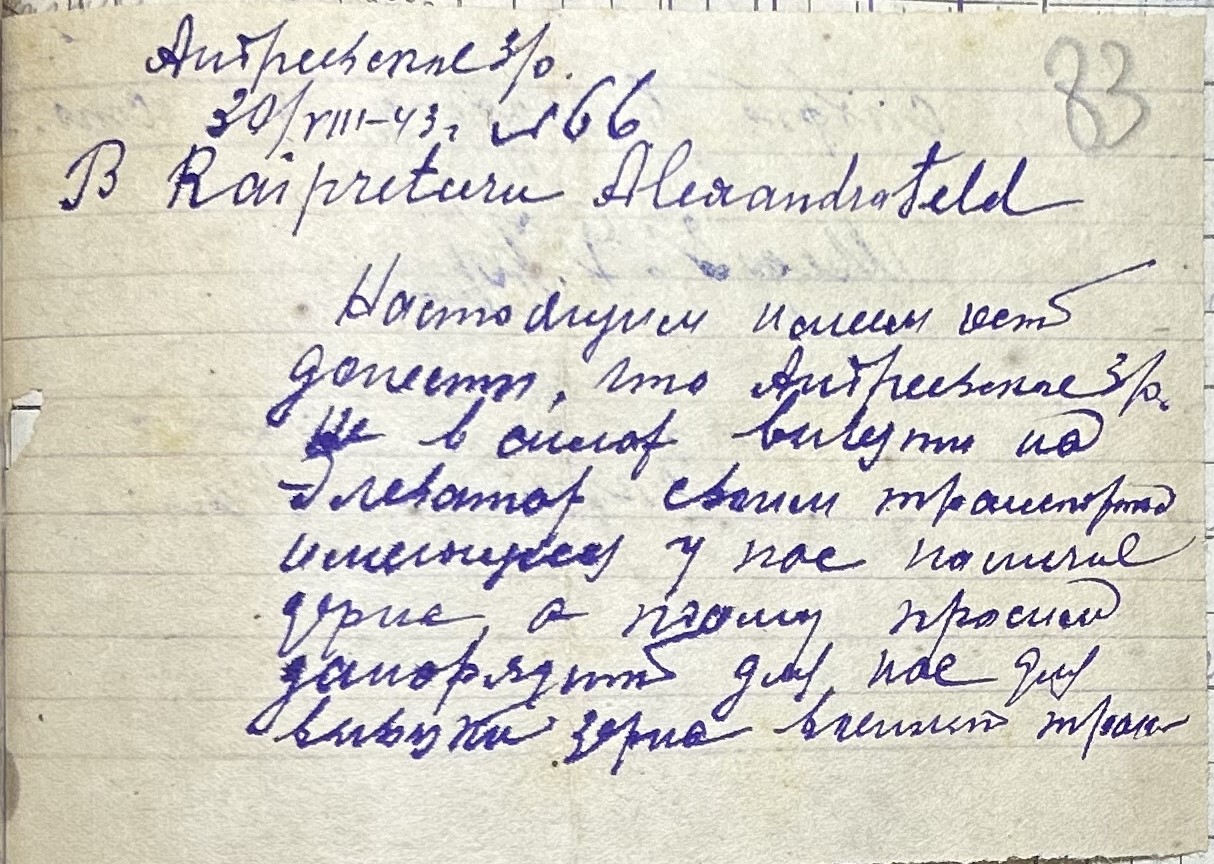 83
Андреевское з/о.
30/VIII-43 г. №66
В Raipreturu Alexandrafeld
Настоящим имеем чест
донести, что Андреевское з/о.
не в силах вивезти на
Элеватор своим транспортом
имеющееся у нас наличие
зерна, а потому просим
занорядить для нас для
вивозки зерна военный тран-